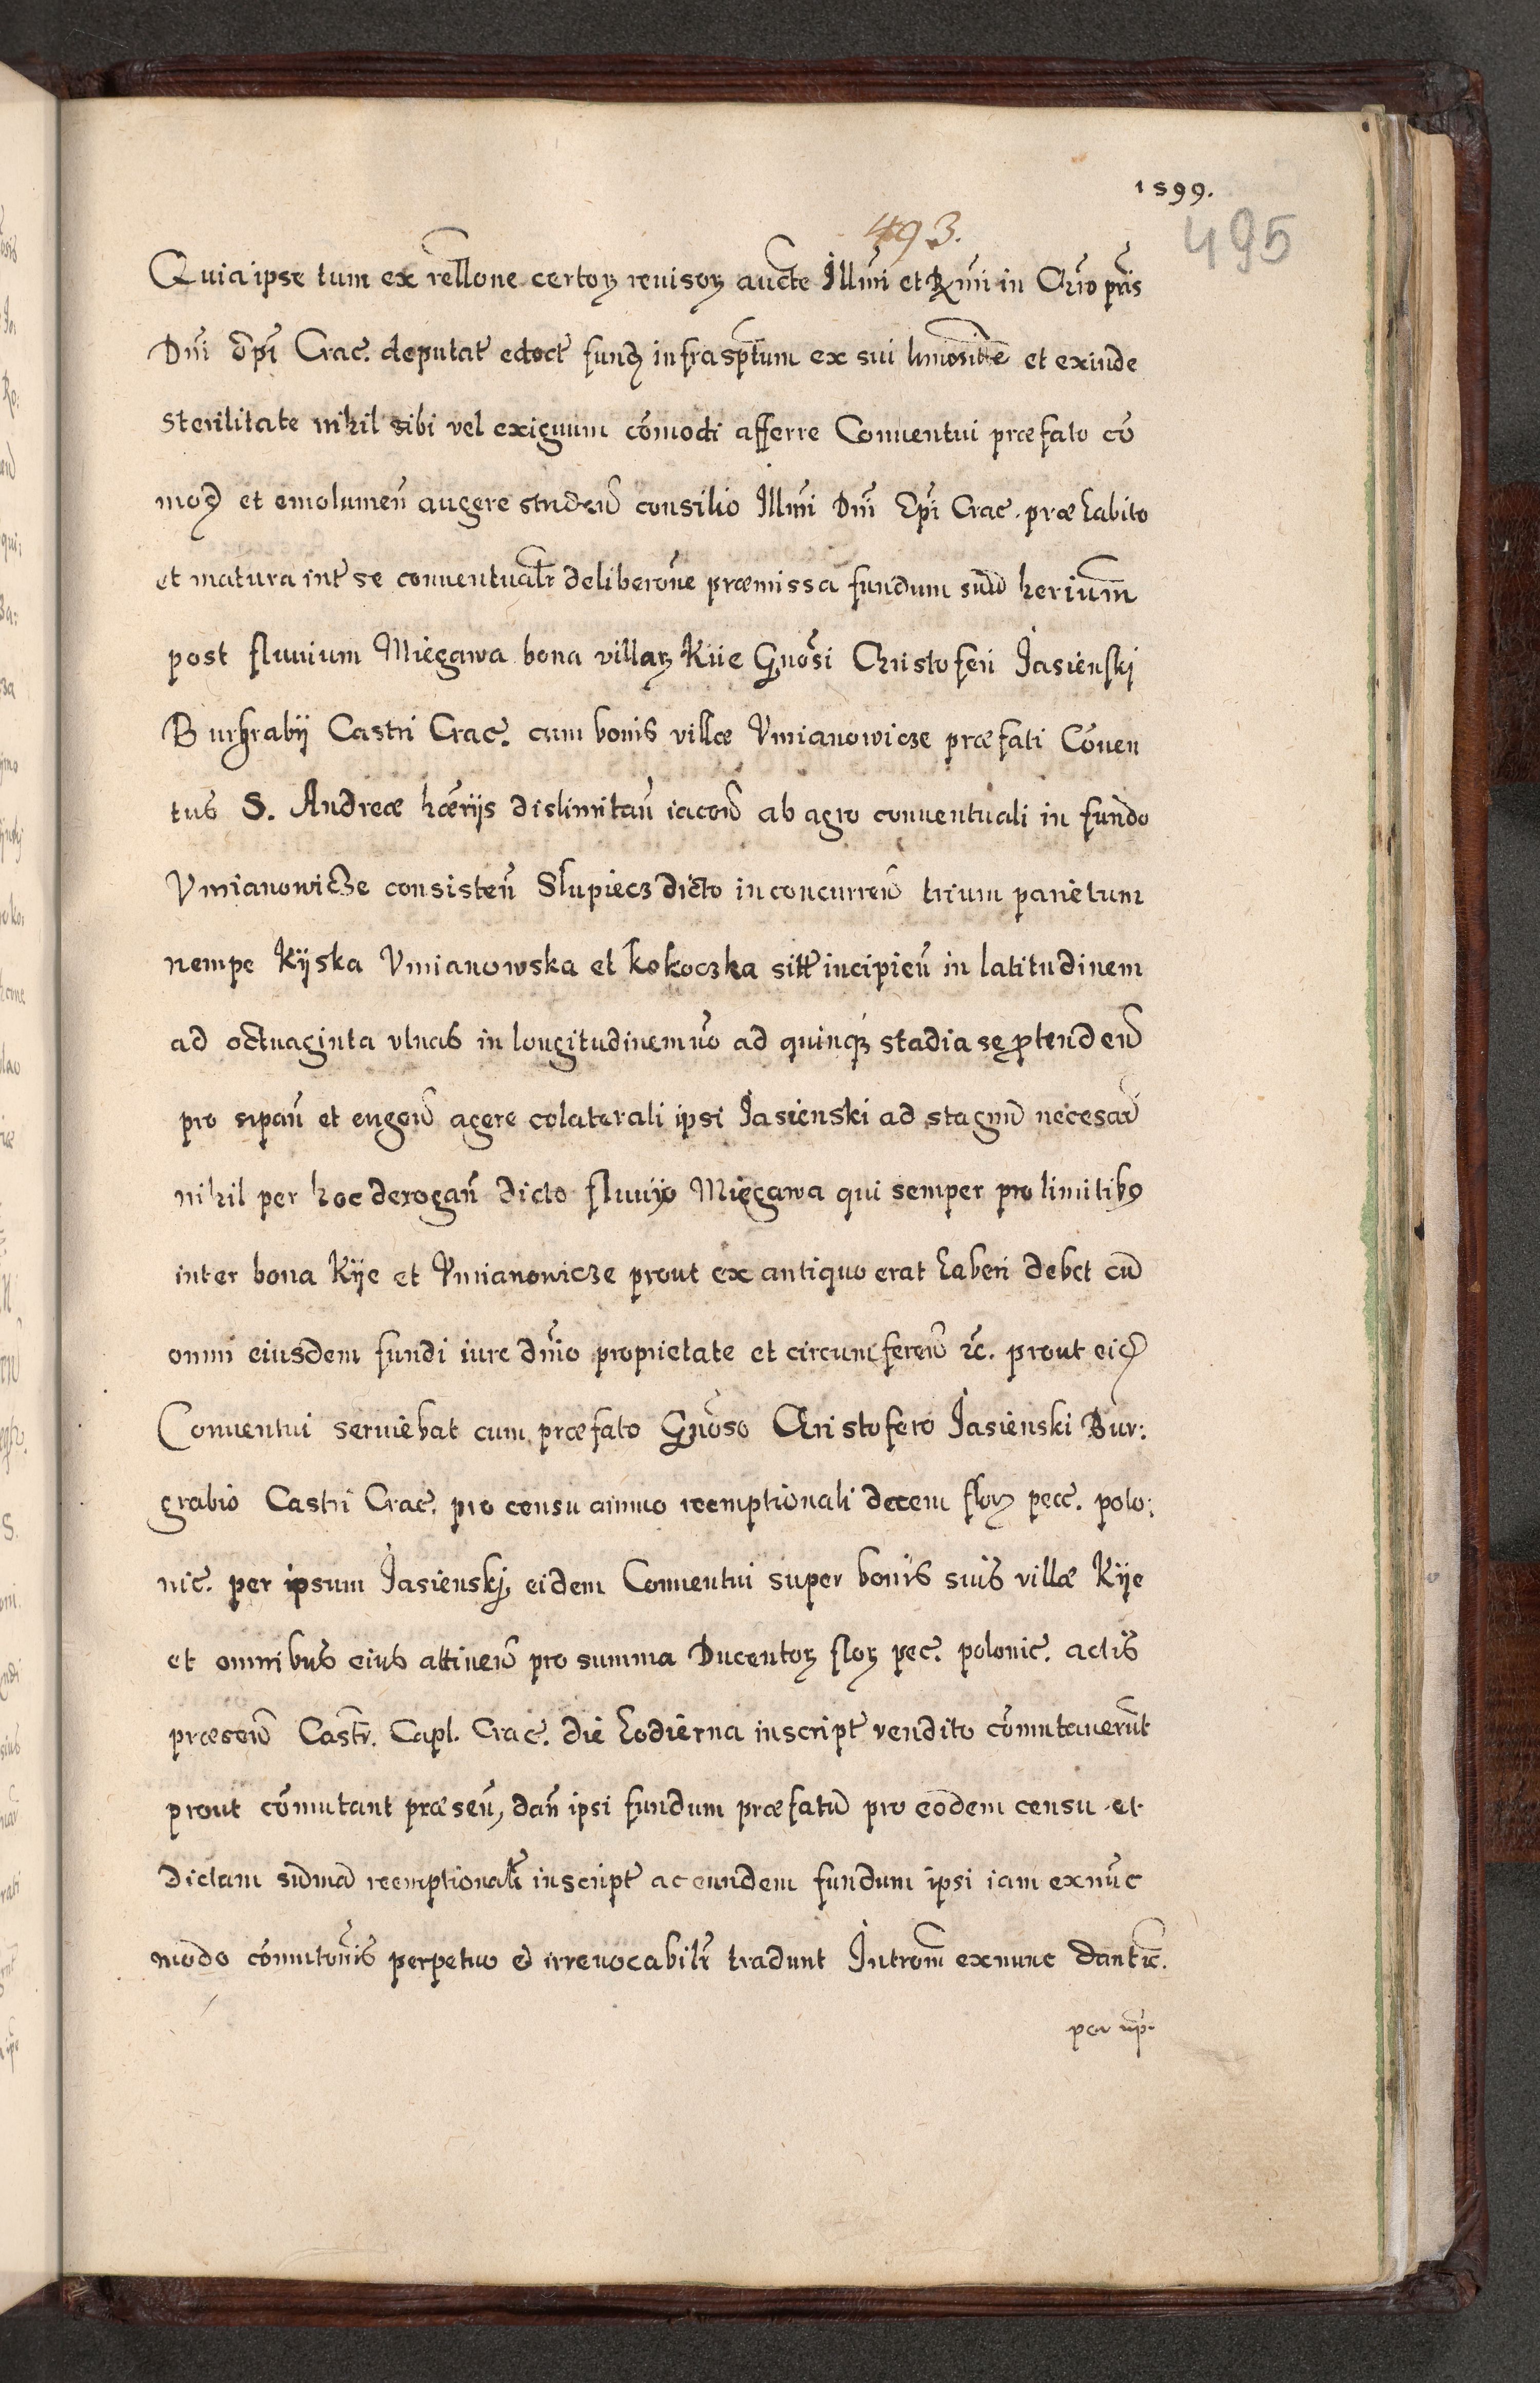 1599.
493.
495
Quia ipse tum ex rellone certorꝫ reuisorꝫ aucte Illmi et Rmi in Chro pris
Dni Epi Crac. deputat edoct fundꝫ infrasptum ex sui limositte et exinde
sterilitate nihil sibi vel exiguum comodi afferre Conuentui præfato co
mod et emolumen augere studen consilio Illmi Dni Epi Crac. præhabito
et matura int se conuentualr deliberone præmissa fundum suu herium
post fluuium Mięgawa bona villarꝫ Kiie Gnosi Christoferi Jasienski
Burgrabij Castri Crac. cum bonis villæ Vmianowicze præfati Conuen
tus S. Andreæ hærijs dislimitan iacen ab agro conuentuali in fundo
Vmianowicze consisten Słupiecz dicto in concurren trium parietum
nempe Kijska Vmianowska et Kokoczka sitt incipien in latitudinem
ad octuaginta vlnas in longitudinem vo ad quinqꝫ stadia se ptenden
pro ripan et engen agere colaterali ipsi Jasienski ad stagnu necesar
nihil per hoc derogan dicto fluuijo Mięgawa qui semper pro limitibꝯ
inter bona Kije et Vmianowicze prout ex antiquo erat haberi debet cu
omni eiusdem fundi iure dnio proprietate et circumferen rc. prout eid
Conuentui seruiebat cum præfato Gnoso Christofero Jasienski Bur:
grabio Castri Crac. pro censu annuo reemptionali decem florꝫ pecc. polo:
nic. per ipsum Jasienskj eidem Conuentui super bonis suis villæ Kije
et omnibus eius attinen pro summa Ducentorꝫ florꝫ pec. polonic. actis
præsen Castr. Capl. Crac. die hodierna inscript vendito comutauerut
prout comutant præsen, dan ipsi fundum præfatu pro eodem censu et
dictam suma reemptionalr inscript ac eundem fundum ipsi iam exnuc
modo comutonis perpetuo et irreuocabilr tradunt Introm exnunc dantc.
per